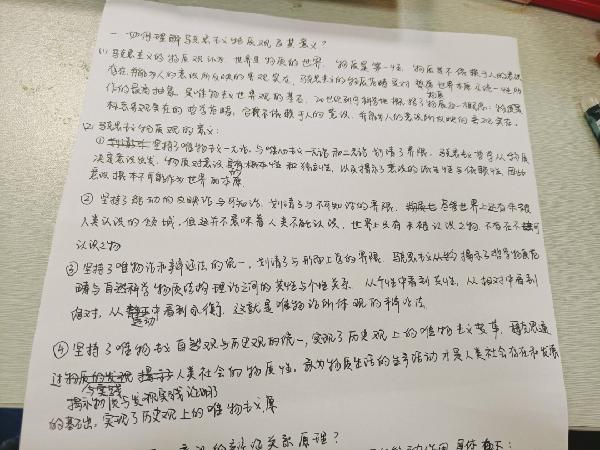 一 如何理解马克思主义物质观及其意义？
(1) 马克思主义的物质观认为 世界是物质的世界，物质是第一性，物质是不依赖于人的意识
存在并能为人的意识所反映的客观实在，马克思主义的物质范畴是对 世界本原 统一性所
作的最高抽象，是唯物主义世界观的基石，列宁 物质 概念：物质是
标志客观实在的哲学范畴，它不依赖于人的意识，并能为人的意识所反映的客观实在。
(2) 马克思主义物质观的意义：
① 坚持了唯物主义一元论，与唯心主义一元论和二元论划清了界限，马克思主义 从物质
决定意识出发，物质对意识具有根本性和 性，以及揭示了意识的派生性与依赖性，因此
意识根本不可能作为世界的本原
② 坚持了能动的反映论与可知论，划清了与不可知论的界限，尽管世界上还有未被
人类认识的领域，但这并不意味着人类不能认识，世界上只有未被认识之物，不存在不可
认识之物
③ 坚持了唯物论和辩证法的统一，划清了与形而上学的界限，马克思主义从 揭示了哲学物质范
畴与自然科学物质结构理论之间的共性与个性关系，从个性中看到共性，从相对中看到
绝对，从运动中看到永恒，这就是唯物论所体现的辩证法
④ 坚持了唯物主义自然观与历史观的统一，实现了历史观上的唯物主义 ，马克思通
过 人类社会的物质性，认为物质生活的生产活动才是人类社会存在和发展
今实践
揭示物质与发现实践 证明了
的基础，实现了历史观上的唯物主义
意识的辩证关系原理？